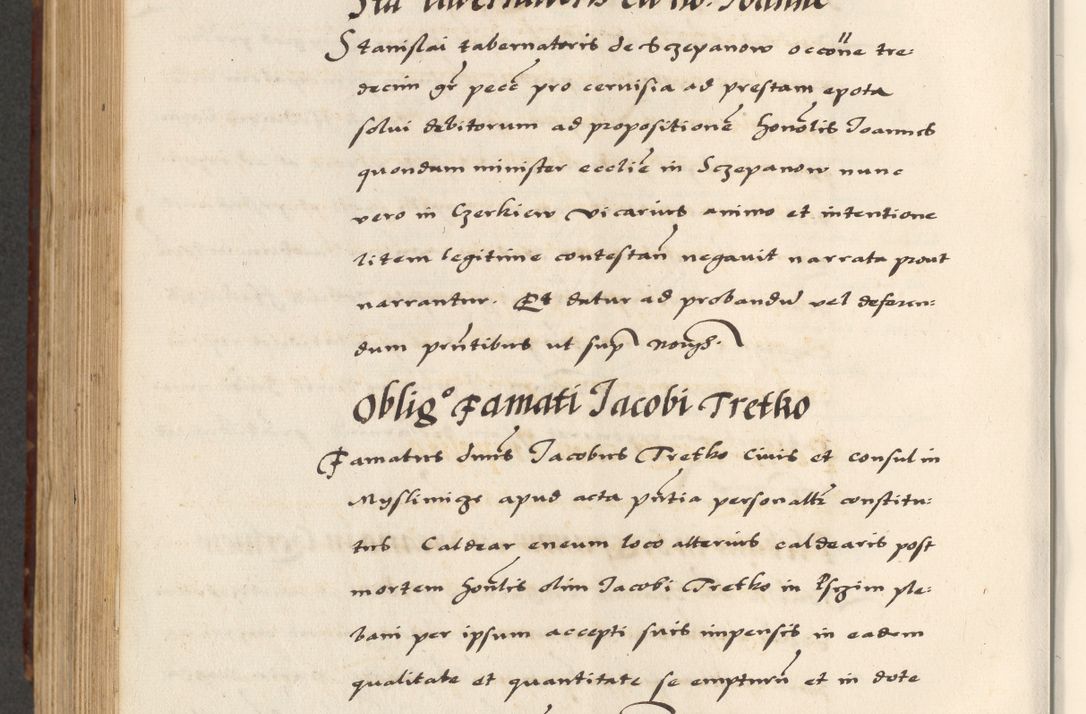 tabernatoris Joanne
Stanislai tabernatoris de Sczepanow occone tre:
decim gr pecc pro cervisia ad prestam epota
solvi debitorum ad propositione honolis Joannes
quondam minister ecclie in Sczepanow nunc
vero in Czerkiew vicarius animo et intentione
litem legitime contestan negavit narrata prout
narrantur. Et datur ad probandu vel deferen:
dum prntibus ut sup
Oblig° Famati Jacobi Tretko
Famatus dnus Jacobus Tretko civis et consul in
Myslimicze apud acta pntia personaltr constitu:
tus Caldear eneum loco alterius caldearis post
mortem honlis olim Jacobi Tretko in Rszim ple:
bani per ipsum accepti suis impensis in eadem
qualitate et quantitate se empturu et in dote